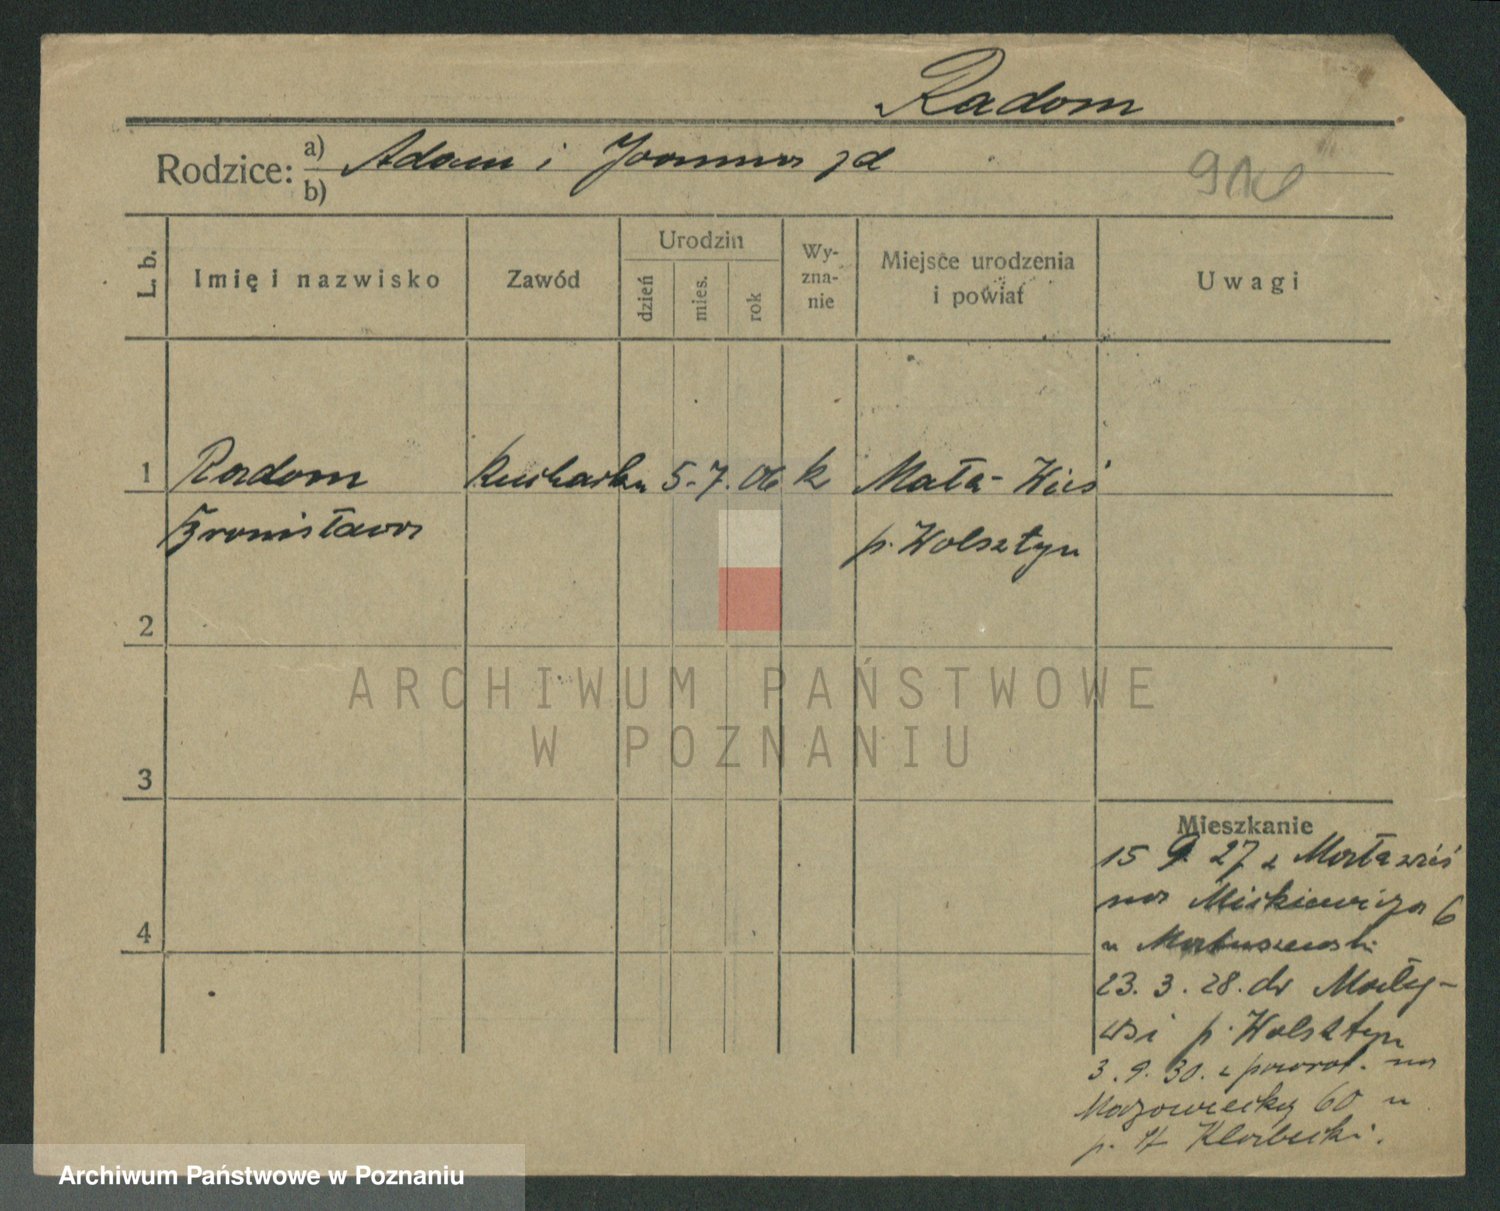 Radom
Rodzice: a) Adam i Joanna zd
b)
L. b. Imię i nazwisko Zawód Urodzin dzień mies. rok Wyznanie Miejsce urodzenia i powiat Uwagi
1 Radom Kucharka 5. 7. 06 k Mała-Wieś
Bronisława p. Wolsztyn
2
3
4
Mieszkanie
15 9. 27 z Mała wieś
na Mickiewicza 6
u Matuszewski
23. 3. 28. do Małej-
wsi p. Wolsztyn
3. 9. 30. z powrot. na
Mazowiecką 60 u
p. H
ARCHIWUM PAŃSTWOWE
W POZNANIU
Archiwum Państwowe w Poznaniu